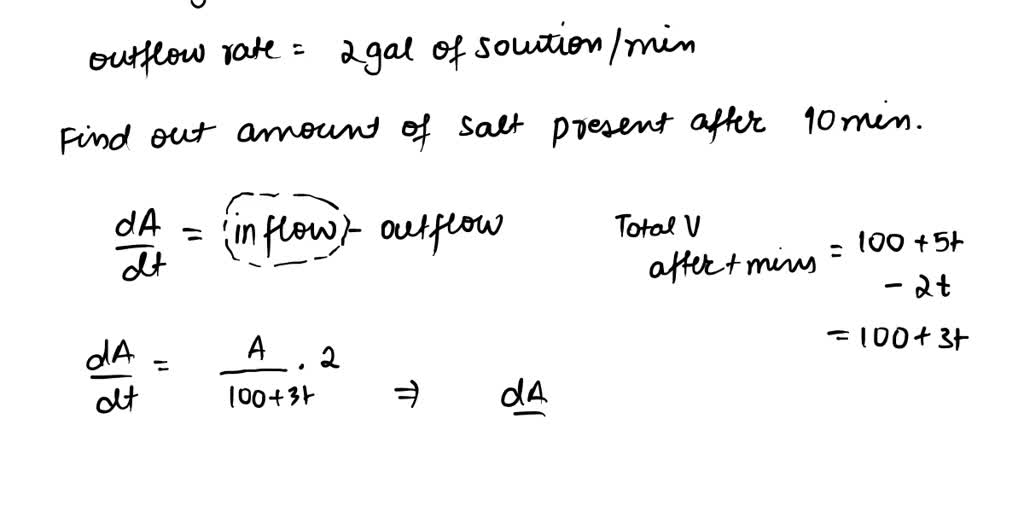 outflow rate = 2gal of solution/min
Find out amount of salt present after 10 min.
dA/dt = (inflow) - outflow
Total V after t mins = 100 + 5t
- 2t
= 100 + 3t
dA/dt = A/(100+3t) . 2 ⇒ dA